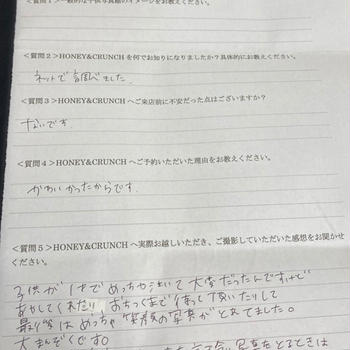 <質問1>一般的な子供写真館のイメージをお教えください。
<質問2>HONEY&CRUNCHを何でお知りになりましたか?具体的にお教えください。
ネットで調べました。
<質問3>HONEY&CRUNCHへご来店前に不安だった点はございますか?
ないです。
<質問4>HONEY&CRUNCHへご予約いただいた理由をお教えください。
かわいかったからです。
<質問5>HONEY&CRUNCHへ実際お越しいただき、ご撮影していただいた感想をお聞かせ
ください。
子供が1才でめっちゃ泣いて大変だったんですけど
あやしてくれたり おちつくまで待って下さいたりして
最後はめっちゃ笑顔の写真がとれてました。
大まんぞくです。
写真をとるときは